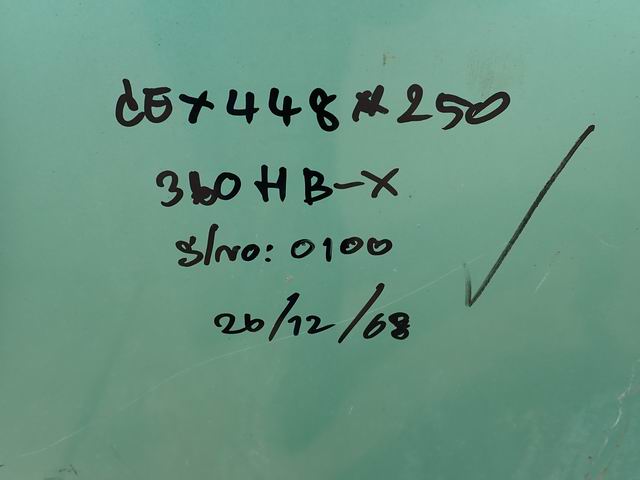 CEX448*250
360HB-X
S/NO: 0100
26/12/68